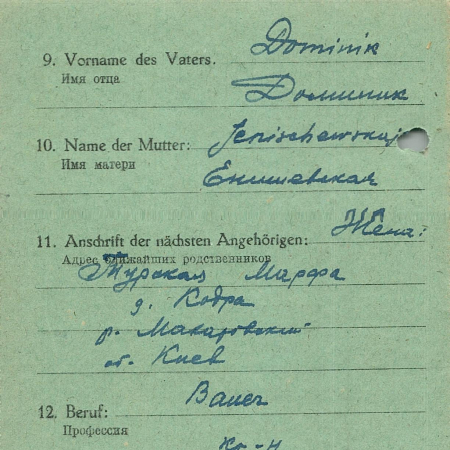 9. Vorname des Vaters. Dominik
Имя отца
Доминик
10. Name der Mutter: Jenischewskaj
Имя матери
Енишевская
11. Anschrift der nächsten Angehörigen: Жена:
Адрес ближайших родственников
Турская Марфа
д. Кодра
р. Макаровский
от. Киев
12. Beruf: Bauer
Профессия